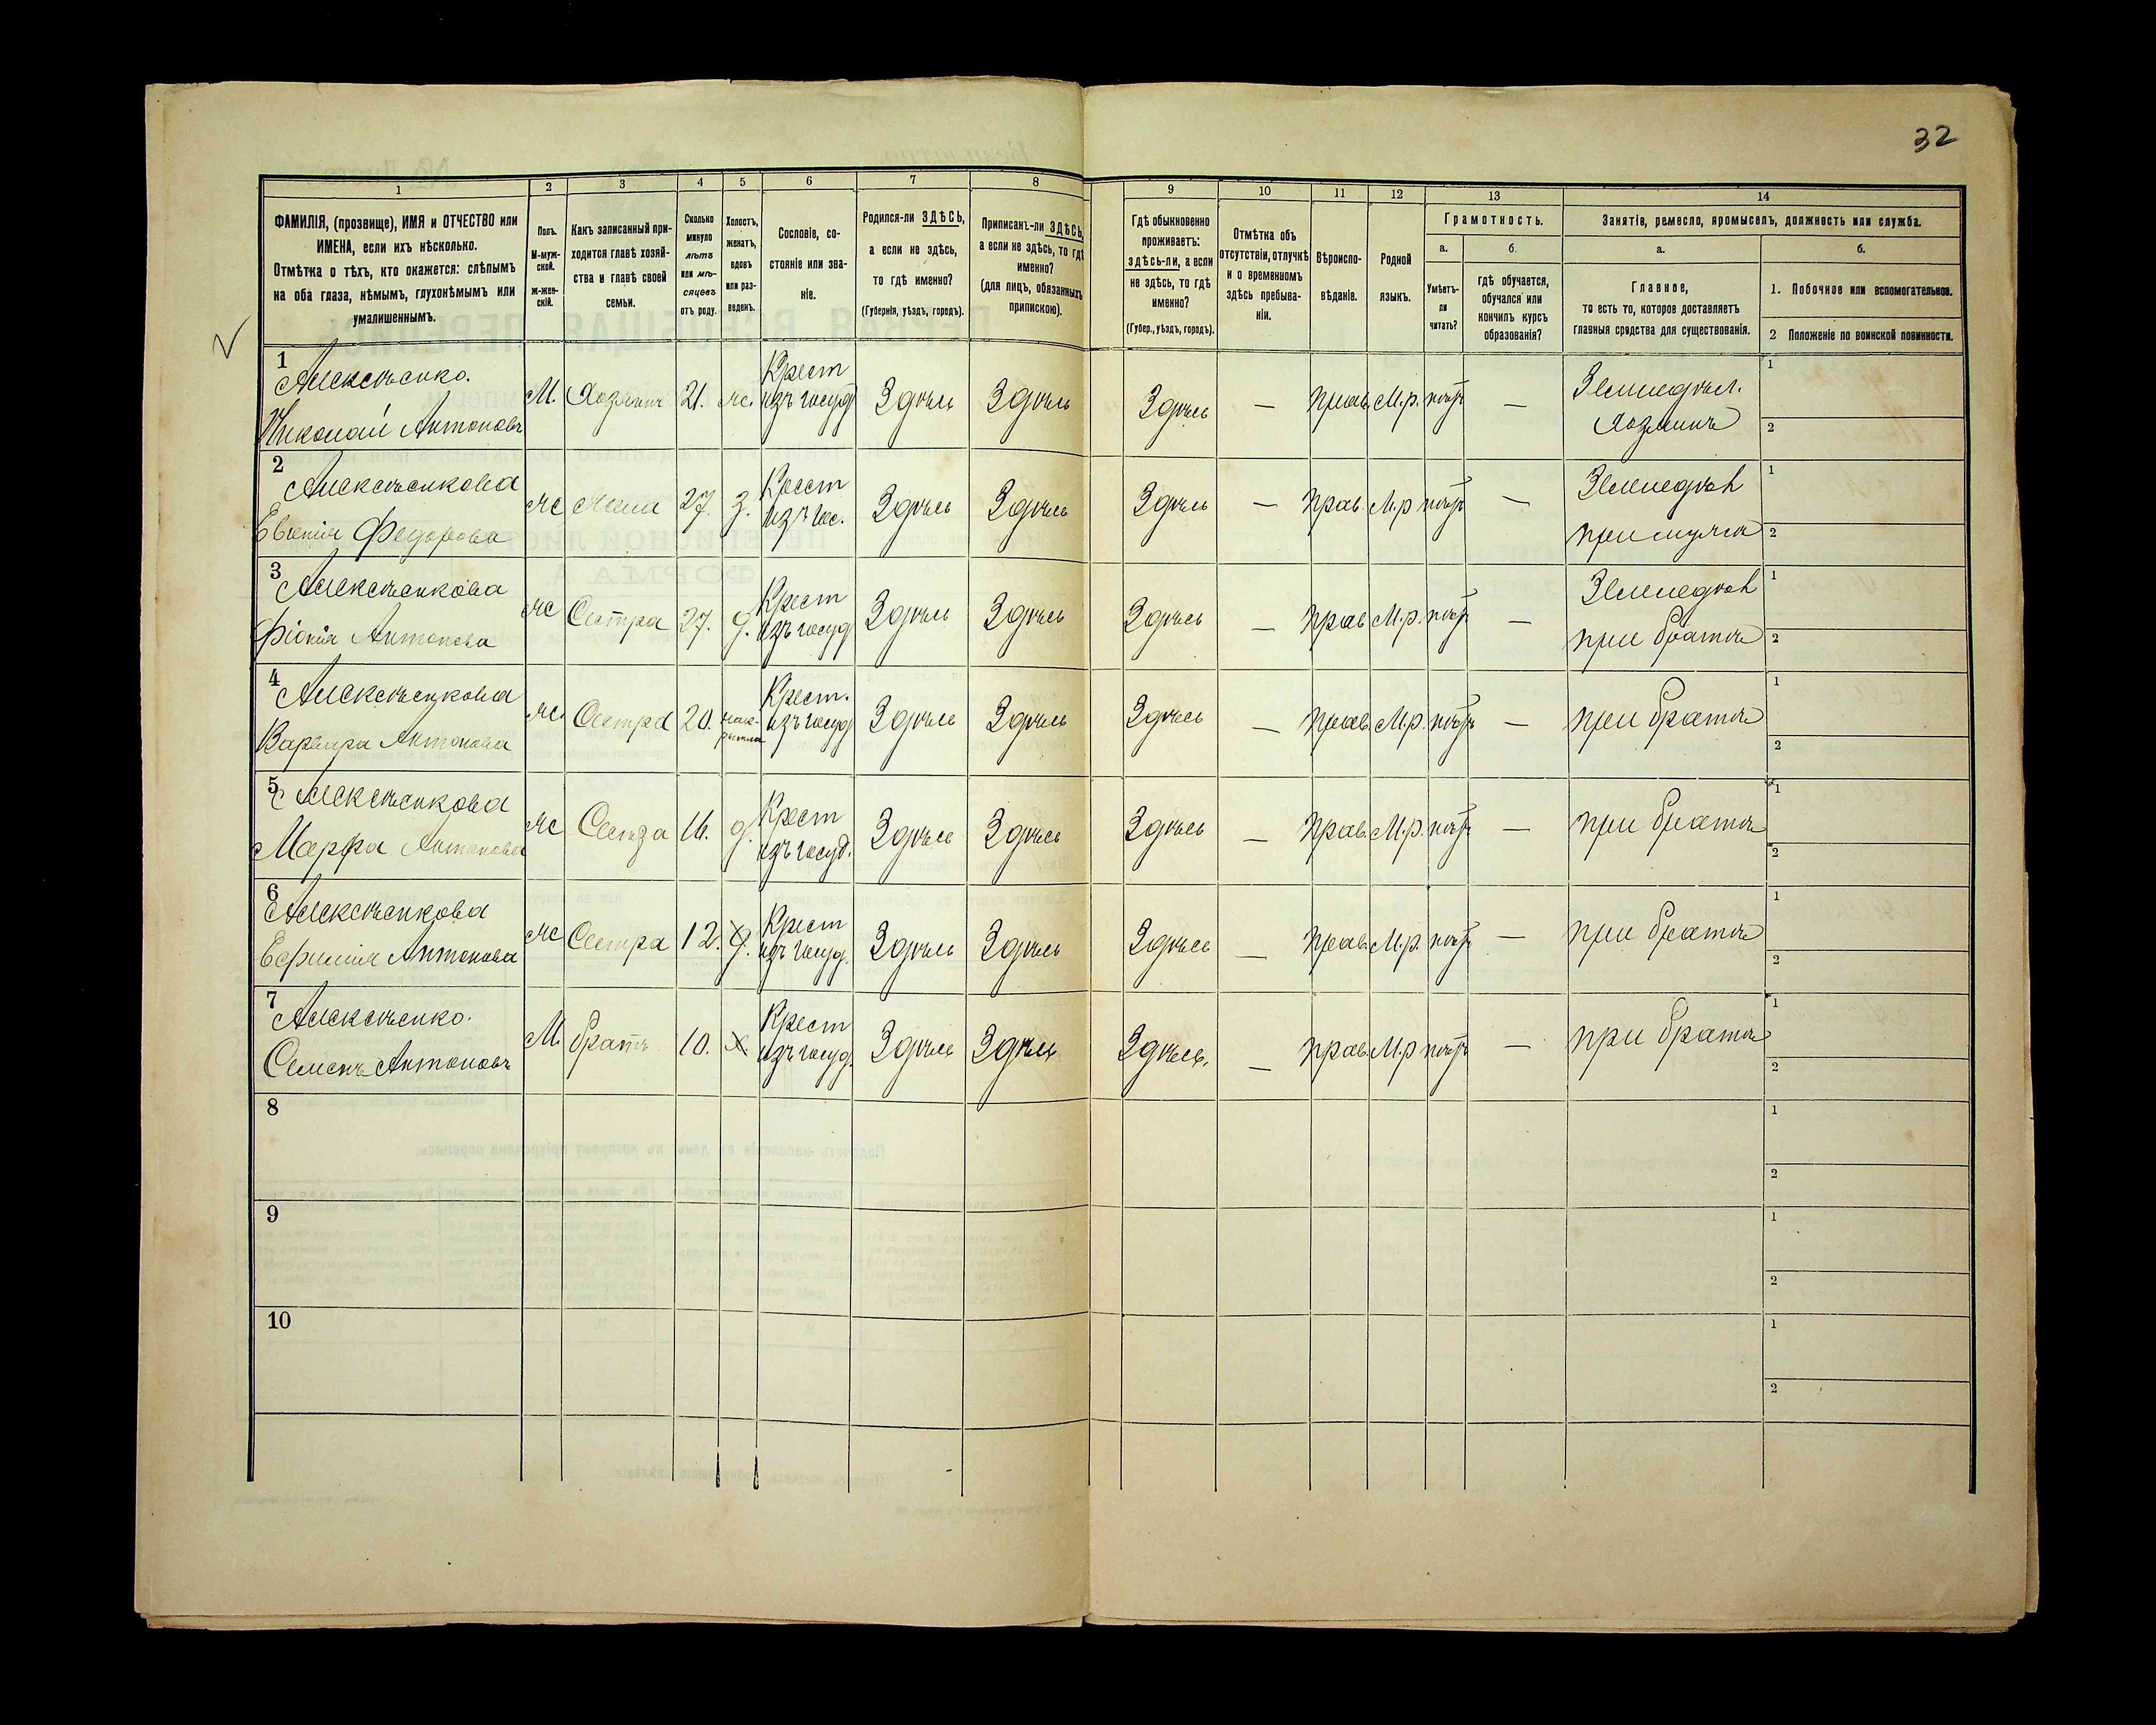 32
1 2 3 4 5 6 7 8 9 10 11 12 13 14
ФАМИЛІЯ, (прозвище), ИМЯ и ОТЧЕСТВО или
ИМЕНА, если ихъ нѣсколько.
Отмѣтка о тѣхъ, кто окажется: слѣпымъ
на оба глаза, нѣмымъ, глухонѣмымъ или
умалишеннымъ.
Полъ.
М-муж-
ской.
Ж-жен-
скій.
Какъ записанный при-
ходится главѣ хозяй-
ства и главѣ своей
семьи.
Сколько
минуло
лѣтъ
или мѣ-
сяцевъ
отъ роду.
Холостъ,
женатъ,
вдовъ
или раз-
веденъ.
Сословіе, со-
стояніе или зва-
ніе.
Родился-ли ЗДѢСЬ,
а если не здѣсь,
то гдѣ именно?
(Губернія, уѣздъ, городъ).
Приписанъ-ли ЗДѢСЬ,
а если не здѣсь, то гдѣ
именно?
(для лицъ, обязанныхъ
припискою).
Гдѣ обыкновенно
проживаетъ:
здѣсь-ли, а если
не здѣсь, то гдѣ
именно?
(Губер., уѣздъ, городъ).
Отмѣтка объ
отсутствіи, отлучкѣ
и о временномъ
здѣсь пребыва-
ніи.
Вѣроиспо-
вѣданіе.
Родной
языкъ.
Грамотность.
а.
Умѣетъ-
ли
читать?
б.
гдѣ обучается,
обучался или
кончилъ курсъ
образованія?
Занятіе, ремесло, промыселъ, должность или служба.
а.
Главное,
то есть то, которое доставляетъ
главныя средства для существованія.
б.
1. Побочное или вспомогательное.
2 Положеніе по воинской повинности.
1
Алексѣенко.
Николай Антоновъ
М. Хозяинъ 21. ж. Крест изъ госуд Здѣсь Здѣсь Здѣсь — прав. М.р. нѣтъ — Земледѣл. Хозяинъ 1 2
2
Алексѣенкова
Евгенія Федорова
Ж Жена 27. З. Крест изъ гос. Здѣсь Здѣсь Здѣсь — прав. М.р нѣтъ — Земледѣл при мужѣ 1 2
3
Алексѣенкова
Фіонія Антонова
Ж Сестра 27. д. Крест изъ госуд Здѣсь Здѣсь Здѣсь — прав М.р. нѣтъ — Земледѣл при братѣ 1 2
4
Алексѣенкова
Варвара Антонова
Ж. Сестра 20. Крест. изъ госуд Здѣсь Здѣсь Здѣсь — прав. М.р. нѣтъ — при братѣ 1 2
5
Алексѣенкова
Марфа Антонова
Ж Сестра 16. д. Крест изъ госуд. Здѣсь Здѣсь Здѣсь — прав. М.р. нѣтъ — при братѣ 1 2
6
Алексѣенкова
Ефимія Антонова
Ж Сестра 12. д. Крест изъ госуд. Здѣсь Здѣсь Здѣсь — прав. М.р. нѣтъ — при братѣ 1 2
7
Алексѣенко.
Семенъ Антоновъ
М. братъ 10. х. Крест изъ госуд. Здѣсь Здѣсь Здѣсь. — прав. М.р нѣтъ — при братѣ 1 2
8 1 2
9 1 2
10 1 2